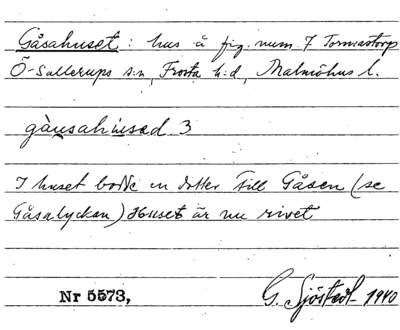 Gåsahuset: hus å fig. num. 7 Tormastorp
Ö-Sallerups s:n, Frosta h:d, Malmöhus l.
gàusahúsed 3
I huset bodde en dotter till Gåsen (se
Gåsalyckan) Huset är nu rivet
Nr 5573, G. Sjöstedt 1940